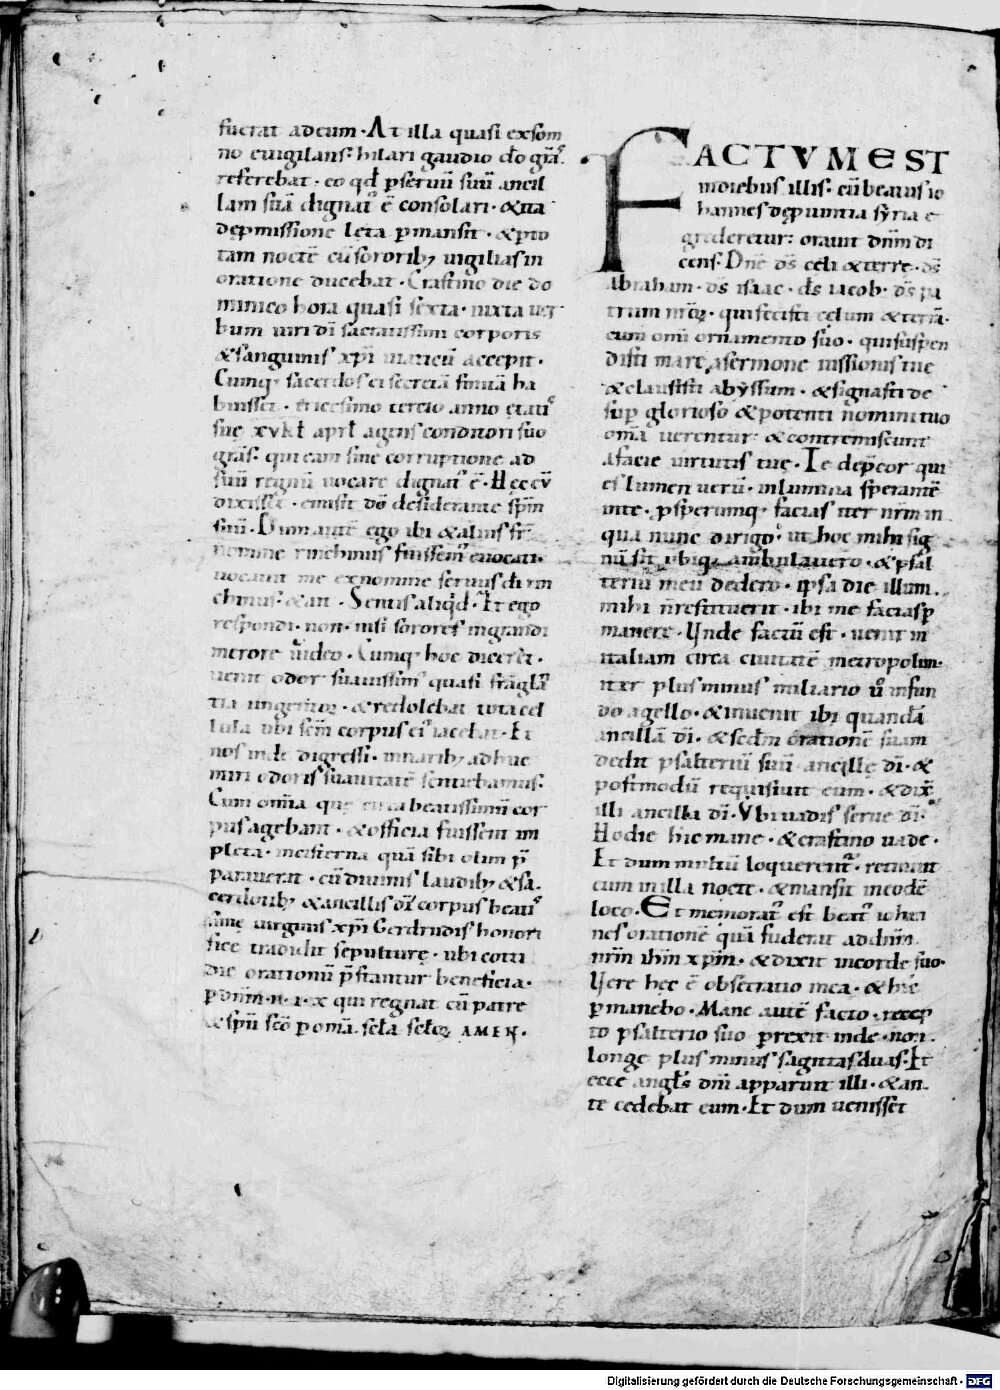 fuerat ad eum · At illa quasi ex som
no euigilans· hilari gaudio do grã·
referebat · eo qđ p seruũ suũ ancil
lam suã dignatˀ ẽ consolari · & ita
dępmissione leta pmansit · & pto
tam noctẽ cũ sororib; uigilias in
oratione ducebat · Crastino die do
minico hora quasi sexta · iuxta uer
bum uiri dĩ sacratissimi corporis
& sanguinis xpi
Cumq; sacerdos ei secretã finitã ha
buisset · tricesimo tercio anno ętatˀ
suę xvkł apřl agens conditori suo
grãs· qui eam sine corruptione ad
suũ regnũ uocare dignatˀ ẽ · Hęc cũ
dixisset · emisit dõ desiderante sp̃m
suũ · Dum autẽ ego ibi & alius fr̃
nomine rinchinus fuissemˀ euocati·
uocauit me ex nomine seruus dĩ rin
chinus· & ait · Sentis aliqđ · Et ego
respondi · non · nisi sorores in grandi
merore uideo · Cumq; hoc dicerẽt ·
uenit odor suauissimˀ quasi
& redolebat tota cel
lula ubi scm̃ corpus eiˀ iacebat · Et
nos inde digressi · in narib; adhuc
miri odoris suauitatẽ sentiebamus·
Cum om̃ia quę circa beatissimũ cor
pus agebant · & officia fuissent im
pleta · in cisterna quã sibi olim p̃
parauerat · cũ diuinis laudib; & sa·
cerdotib; & ancillis dĩ corpus beatˀ
sime uirginis xpi Gerdrudis honori
fice tradidit sepulturę · ubi cotti
die orationũ p̃stantur beneficia·
p dnm̃ · n · i · x qui regnat cũ patre
& sp̃u sc̃o p om̃a · scl̃a scl̃oꝝ AMEN ·
FACTVM EST
in diebus illis· cũ beatus io
hannes dę puintia syria e
grederetur: orauit dnm̃ di
cens· Dnẽ ds̃ cęli & terrę · ds̃
abraham · ds̃ isaac · ds̃ iacob · ds̃ pa
trum nr̃oꝝ · qui fecisti cęlum & terrã·
cum om̃i ornamento suo · qui suspen
disti mare a sermone iussionis tue
& clausisti abyssum · & signasti de
sup glorioso & potenti nomini tuo
om̃a uerentur· & contremiscunt
a facie uirtutis tuę · Te dep̃cor qui
es lumen uerũ · inlumina sperantẽ
in te · psperumq; facias iter nr̃m in
qua nunc dirigo· ut hoc mihi sig
nũ sit ubiq; ambulauero · & psal
teriũ meũ dedero · ipsa die illum
mihi ñ restituerit · ibi me facias p
manere · Unde factũ est · uenit in
italiam circa ciuitatẽ metropolim·
iter plus minus miliario uo in fun
do agello · & inuenit ibi quandã
ancillã dĩ · & scđm orationẽ suam
dedit psalteriũ suũ ancille dĩ · &
postmodũ requisiuit eum · & dix̃
illi ancilla dĩ · Vbi uadis serue dĩ·
Hodie hic mane · & crastino uade ·
Et dum multũ loquerentˀ · retinuit
cum in illa nocte · & mansit in eodẽ
loco · Et memoratˀ est beatˀ iohan
nes orationẽ quã fuderat ad dnm̃
nrm̃ ihm̃ xpm̃ · & dixit in corde suo·
Uere hęc ẽ obseruatio mea · & hic
pmanebo · Mane autẽ facto · recep
to psalterio suo prexit inde · non
longe plus minus sagittas duas· Et
ecce angl̃s dnĩ apparuit illi · & an
te cedebat eum · Et dum uenisset
Digitalisierung gefördert durch die Deutsche Forschungsgemeinschaft · DFG